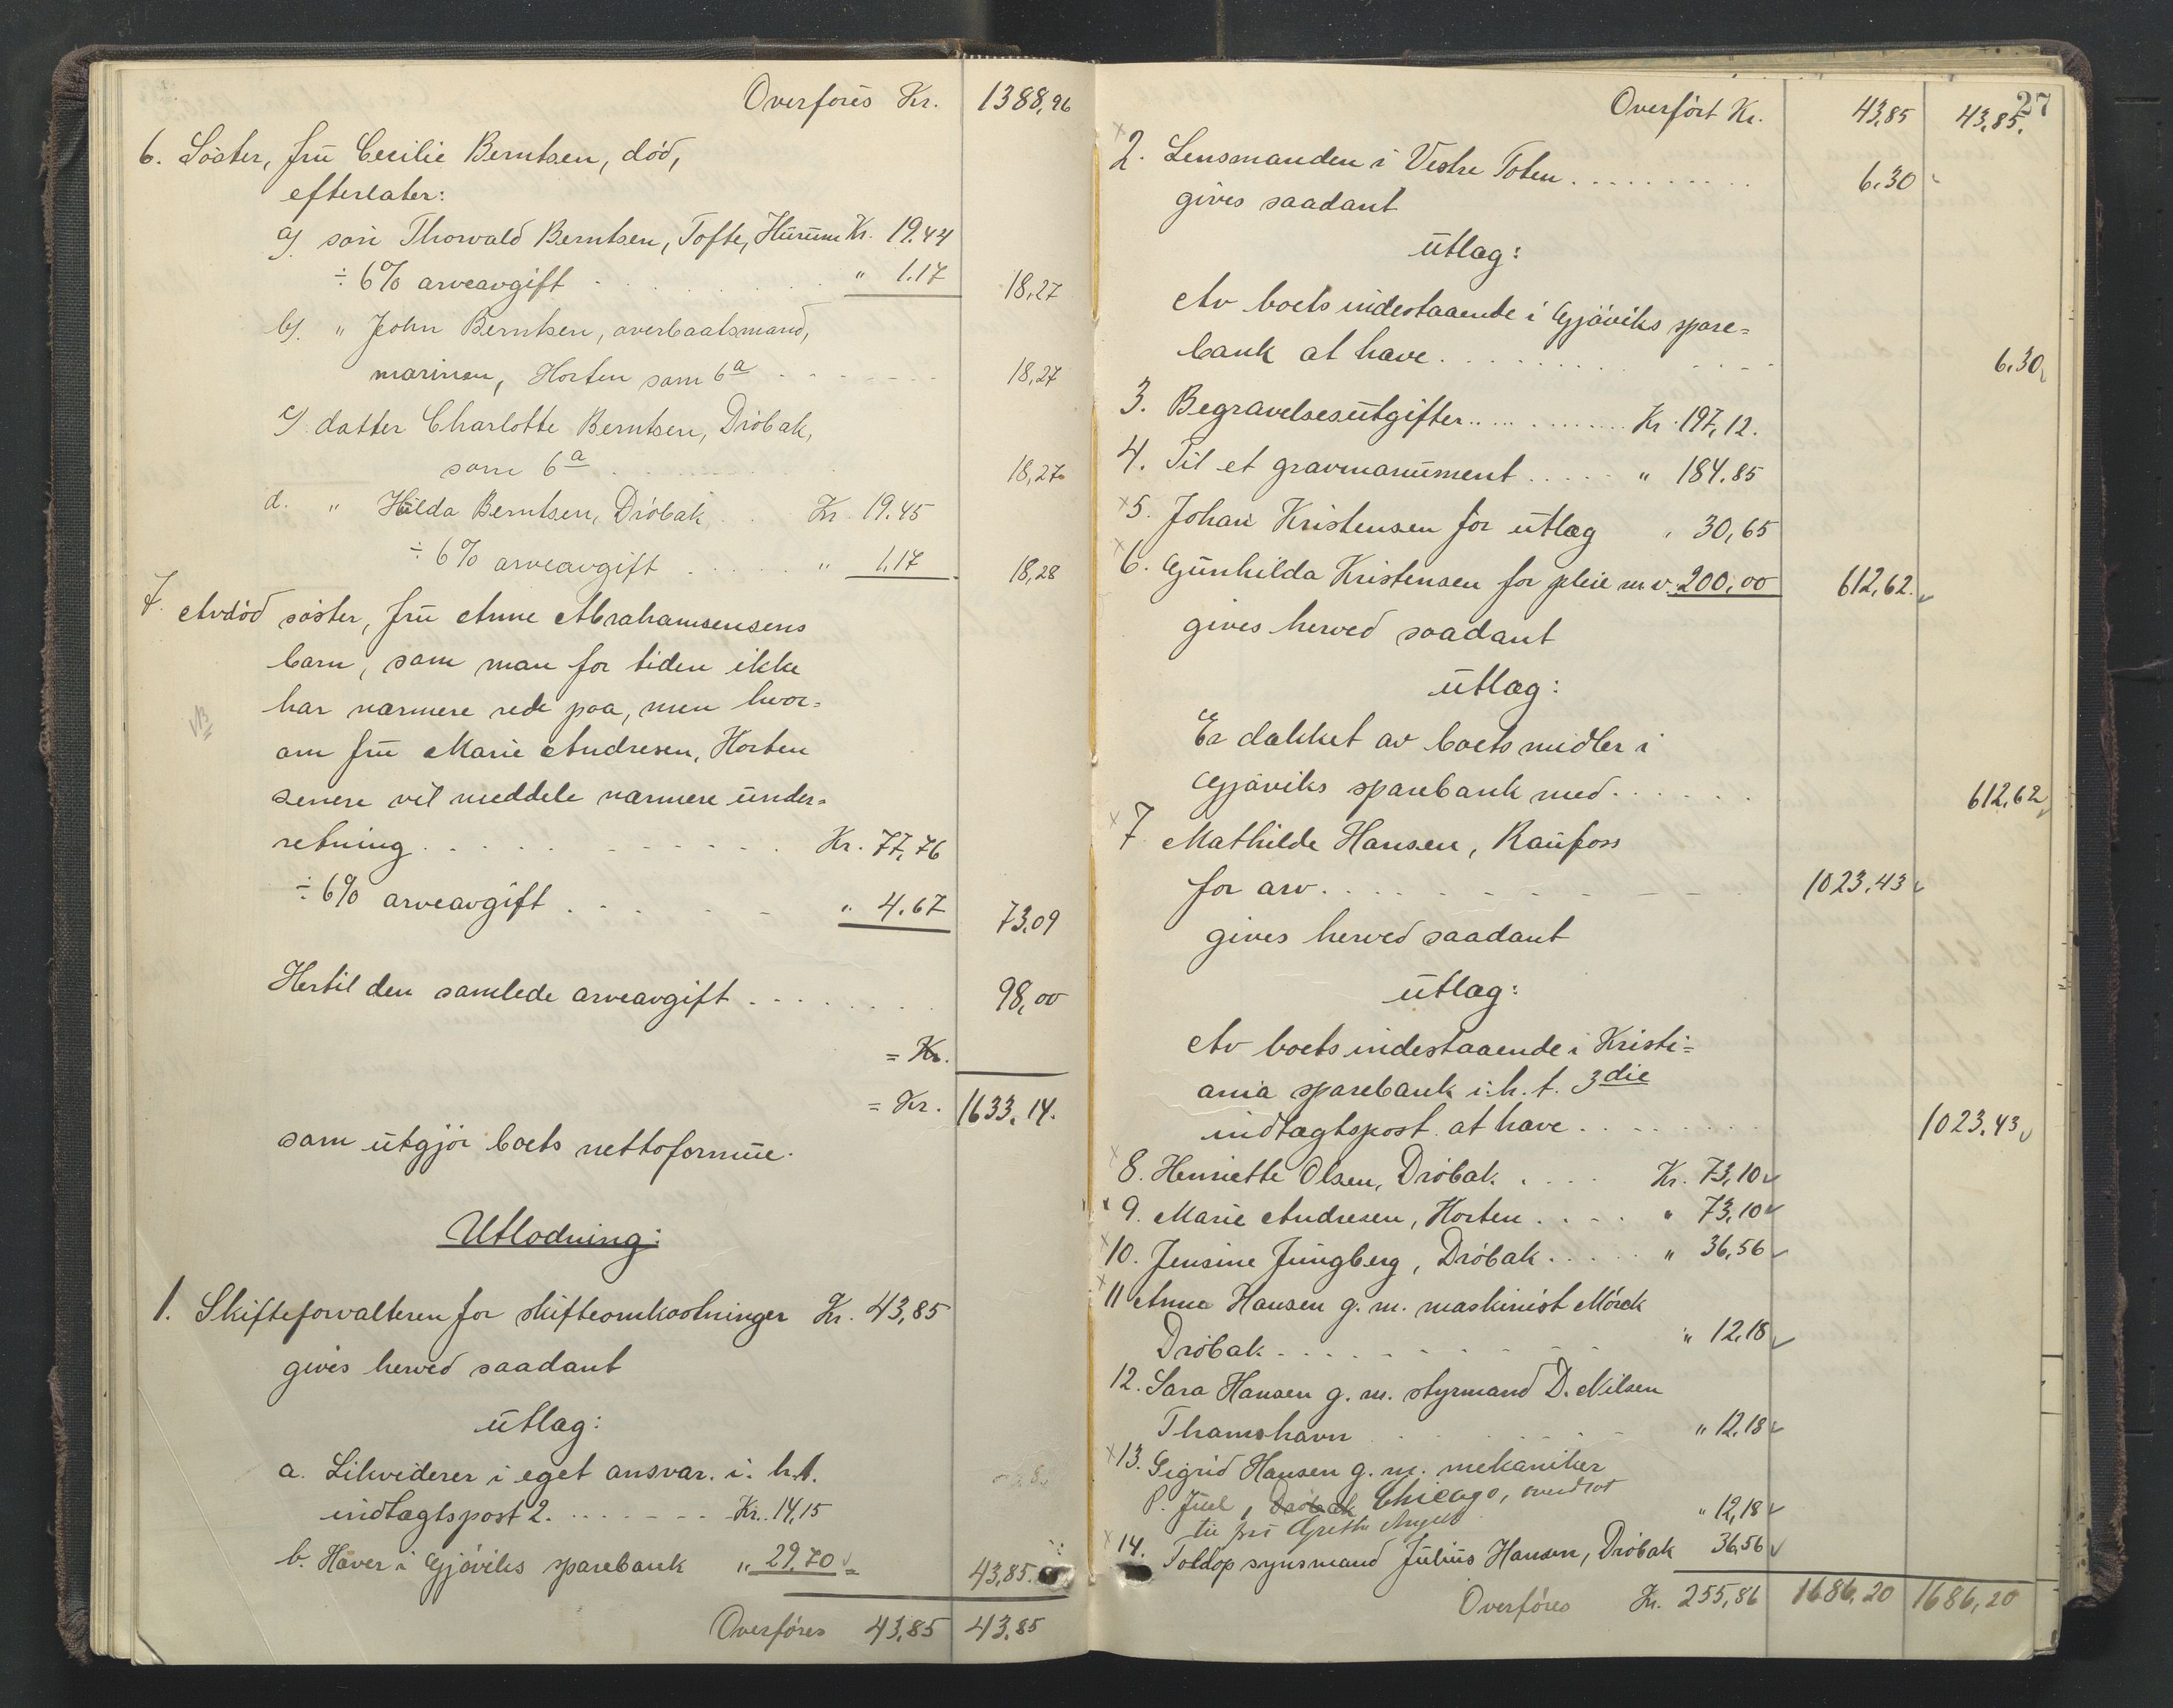 Overføres Kr. 1388,96
6. Søster, frü Cecilie Berntsen, död,
efterlater:
a) søn Thorvald Berntsen, Tofte, Hürüm Kr. 19.44
÷ 6% arveavgift " 1.17 18,27
b) " John Berntsen, overbaatsmand,
marinen, Horten som 6a 18,27
c) datter Charlotte Berntsen, Dröbak,
som 6a 18,27
d. " Hilda Berntsen, Dröbak Kr. 19.45
÷ 6% arveavgift " 1,17 18,28
7. Avdöd söster, frü Anne Abrahamsensens
barn, som man for tiden ikke
har nærmere rede paa, men hvor=
NB
om frü Marie Andresen, Horten
senere vil meddele nærmere ünder=
retning Kr. 77,76
÷ 6% arveavgift " 4.67 73,09
Hertil den samlede arveavgift 98,00
= Kr.
= Kr. 1633.14.
som ütgjör boets nettoformüe.
Utlodning:
1. Skifteforvalteren for skifteomkostninger Kr. 43,85
gives herved saadant
ütlæg:
a. Likviderer i eget ansvar. i. h.t.
indtægtspost 2. Kr. 14,15
b. Haver i Gjöviks sparebank " 29.70 43,85.
Overföres 43,85 43,85
27
Overfört Kr. 43,85 43,85.
2. Lensmanden i Vestre Toten 6.30
gives saadant
ütlæg:
Av boets indestaaende i Gjöviks spare=
bank at have 6.30
3. Begravelsesütgifter Kr. 197,12.
4. Til et gravmonüment " 184.85
5. Johan Kristensen for ütlæg " 30,65
6. Günhilda Kristensen for pleie m.v. 200,00 612,62.
gives herved saadant
ütlæg:
Er dækket av boets midler i
Gjöviks sparebank med 612,62
7 Mathilde Hansen, Raüfoss
for arv 1023.43
gives herved saadant
ütlæg:
Av boets indestaaende i Kristi=
ania sparebank i.h.t. 3die
indtægtspost at have 1023.43
8. Henriette Olsen, Dröbak. Kr. 73,10
9. Marie Andresen, Horten " 73,10
10. Jensine Jüngberg, Dröbak " 36,56
11 Anna Hansen g. m. maskinist Mörck
Dröbak " 12,18
12. Sara Hansen g. m. styrmand D. Nilsen
Thamshavn " 12,18
13. Sigrid Hansen g. m. mekaniker
P. Jüel, Dröbak Chicago,
til frü Grethe " 12,18
14. Toldopsynsmand Jülius Hansen, Dröbak 36,56
Overföres Kr. 255,86 1686,20 1686,20